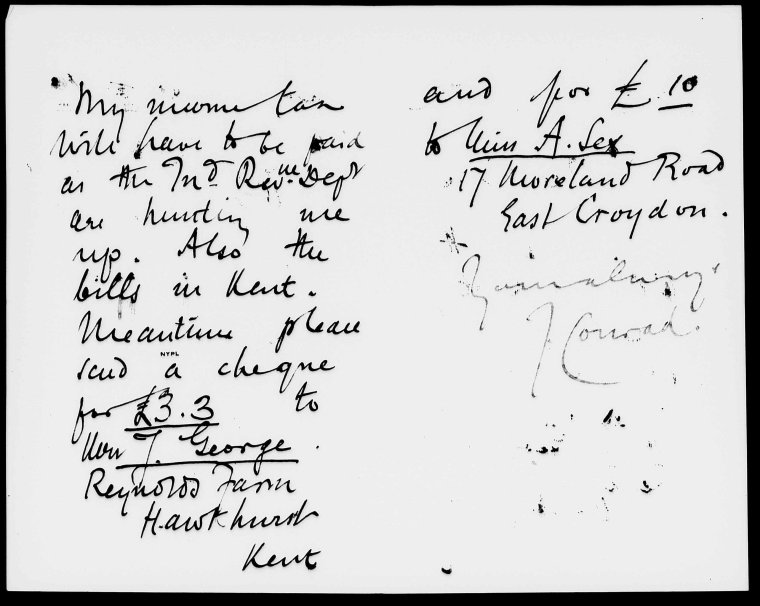 My income tax
will have to be paid
as the Ind Revue Dept
are hunting me
up. Also the
bills in Kent.
Meantime please
send a cheque
NYPL
for £3.3 to
J. George
Reynolds Farm
Hawkhurst
Kent
and for £10
to Miss A. Sex
17 Moreland Road
East Croydon.
Yours always
J Conrad.